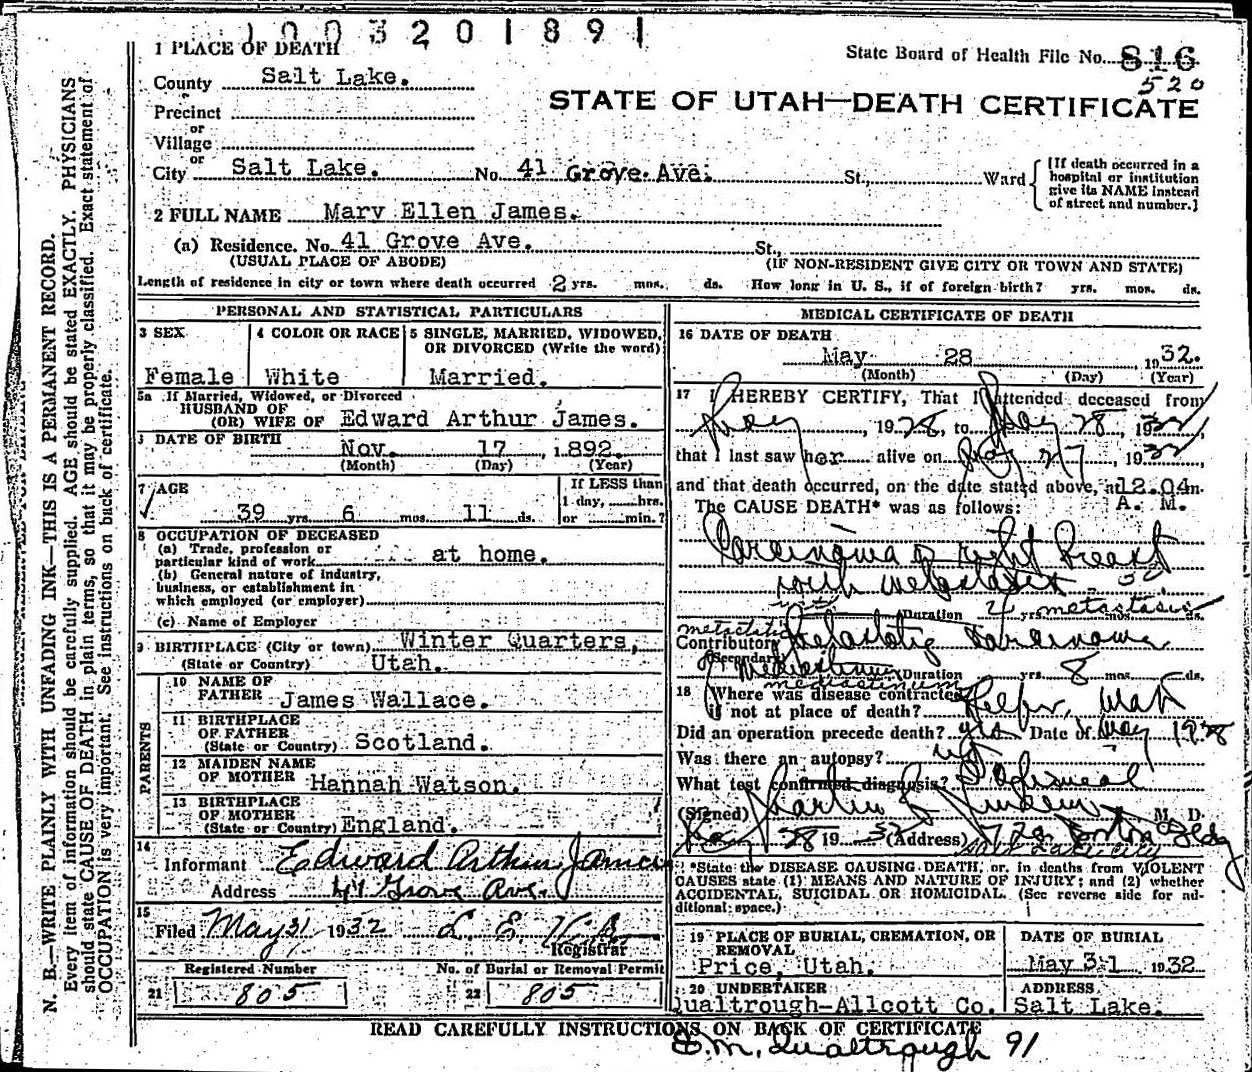 1003201891
1 PLACE OF DEATH
State Board of Health File No. 816
520
County Salt Lake.
STATE OF UTAH—DEATH CERTIFICATE
Precinct
or
Village
or
City Salt Lake. No. 41 Grove Ave. St., Ward
[If death occurred in a
hospital or institution
give its NAME instead
of street and number.]
2 FULL NAME Mary Ellen James.
(a) Residence. No. 41 Grove Ave. St.,
(USUAL PLACE OF ABODE) (IF NON-RESIDENT GIVE CITY OR TOWN AND STATE)
Length of residence in city or town where death occurred 2 yrs. mos. ds. How long in U. S., if of foreign birth? yrs. mos. ds.
PERSONAL AND STATISTICAL PARTICULARS
3 SEX
Female
4 COLOR OR RACE
White
5 SINGLE, MARRIED, WIDOWED,
OR DIVORCED (Write the word)
Married.
5a If Married, Widowed, or Divorced
HUSBAND OF
(OR) WIFE OF Edward Arthur James.
DATE OF BIRTH
Nov. 17, 1892.
(Month) (Day) (Year)
7 AGE
39 yrs. 6 mos. 11 ds.
If LESS than
1 day, hrs.
or min.?
8 OCCUPATION OF DECEASED
(a) Trade, profession or
particular kind of work at home.
(b) General nature of industry,
business, or establishment in
which employed (or employer)
(c) Name of Employer
9 BIRTHPLACE (City or town) Winter Quarters,
(State or Country) Utah.
PARENTS
10 NAME OF
FATHER James Wallace.
11 BIRTHPLACE
OF FATHER
(State or Country) Scotland.
12 MAIDEN NAME
OF MOTHER Hannah Watson.
13 BIRTHPLACE
OF MOTHER
(State or Country) England.
14
Informant Edward Arthur James
Address 41 Grove Ave.
15
Filed May 31 1932 L. E.
Registrar
Registered Number
21 805
No. of Burial or Removal Permit
22 805
MEDICAL CERTIFICATE OF DEATH
16 DATE OF DEATH
May 28, 1932.
(Month) (Day) (Year)
17 I HEREBY CERTIFY, That I attended deceased from
May, 1928, to May 28, 1932,
that I last saw her alive on May 27, 1932
and that death occurred, on the date stated above, at 12.04 m.
A. M.
The CAUSE DEATH* was as follows:
Carcinoma of right breast
with metastasis
Duration 4 yrs. metastasis ds.
metastatic
Contributory carcinoma
(Secondary)
mediastinum
Duration yrs. 8 mos. ds.
18 Where was disease contracted
if not at place of death? Helper, Utah
Did an operation precede death? yes Date of May 1928
Was there an autopsy? no
What test confirmed diagnosis?
(Signed) M. D.
May 28 1932 (Address) Boston Bldg
Salt Lake City
*State the DISEASE CAUSING DEATH, or, in deaths from VIOLENT
CAUSES state (1) MEANS AND NATURE OF INJURY; and (2) whether
ACCIDENTAL, SUICIDAL OR HOMICIDAL. (See reverse side for ad-
ditional space.)
19 PLACE OF BURIAL, CREMATION, OR
REMOVAL
Price, Utah.
DATE OF BURIAL
May 31 1932
20 UNDERTAKER
Qualtrough-Allcott Co.
ADDRESS
Salt Lake.
READ CAREFULLY INSTRUCTIONS ON BACK OF CERTIFICATE
E.M. Qualtrough 91
N. B.—WRITE PLAINLY WITH UNFADING INK—THIS IS A PERMANENT RECORD.
Every item of information should be carefully supplied. AGE should be stated EXACTLY. PHYSICIANS
should state CAUSE OF DEATH in plain terms, so that it may be properly classified. Exact statement of
OCCUPATION is very important. See instructions on back of certificate.